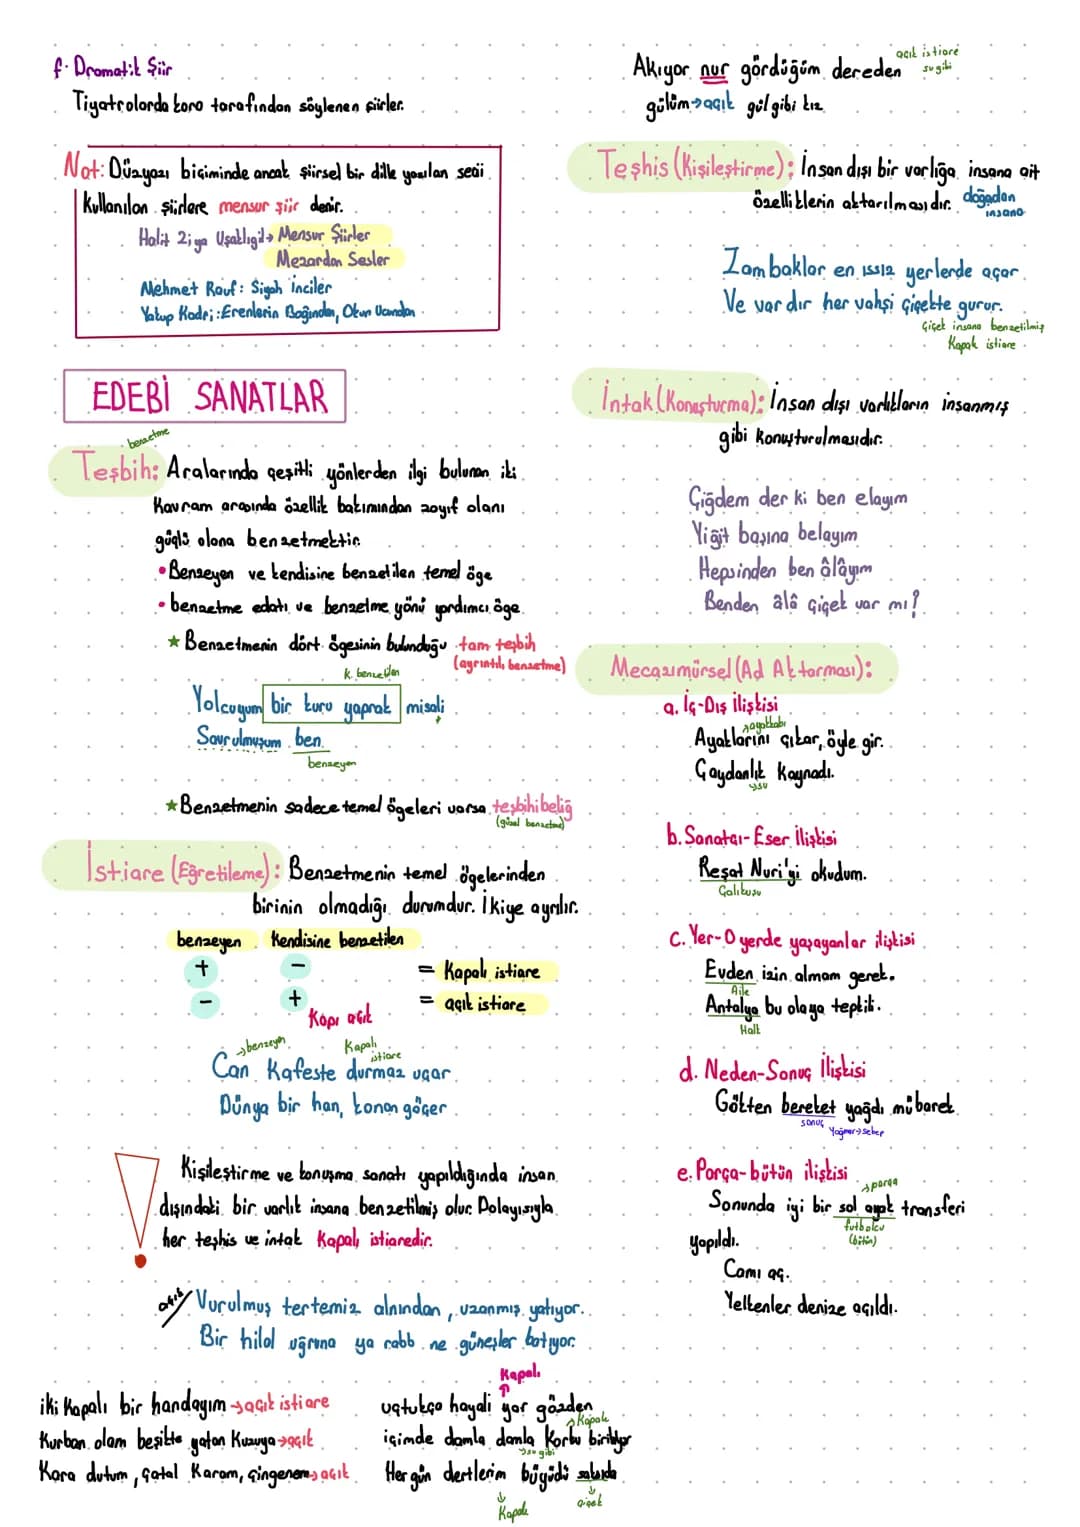 f. Dramatik Şiir
Tiyatrolarda koro tarafından söylenen şiirler.
Not: Düzyazı biçiminde ancak şiirsel bir dille yazılan seci
kullanılan şiirlere mensur şiir denir.
Halit Ziya Uşaklıgil → Mensur Şiirler
Mezardan Sesler
Mehmet Rauf: Siyah İnciler
Yakup Kadri: Erenlerin Bağından, Okun Ucundan
EDEBİ SANATLAR
benzetme
Teşbih: Aralarında çeşitli yönlerden ilgi bulunan iki
kavram arasında özellik bakımından zayıf olanı
güçlü olana benzetmektir.
• Benzeyen ve kendisine benzetilen temel öge
• benzetme edatı ve benzetme yönü yardımcı öge
★ Benzetmenin dört ögesinin bulunduğu tam teşbih
(ayrıntılı benzetme)
k. benzetilen
Yolcuyum bir kuru yaprak misali
Savrulmuşum ben
benzeyen
★ Benzetmenin sadece temel ögeleri varsa teşbihibeliğ
(güzel benzetme)
İstiare (Eğretileme): Benzetmenin temel ögelerinden
birinin olmadığı durumdur. İkiye ayrılır.
benzeyen kendisine benzetilen
+ - = Kapalı istiare
- + = açık istiare
Kapı açık
→benzeyen Kapalı istiare
Can kafeste durmaz uçar
Dünya bir han, konan göçer
! Kişileştirme ve konuşma sanatı yapıldığında insan
dışındaki bir varlık insana benzetilmiş olur. Dolayısıyla
her teşhis ve intak kapalı istiaredir.
açık
Vurulmuş tertemiz alnından, uzanmış yatıyor.
Bir hilal uğruna ya rabb ne güneşler batıyor.
iki kapalı bir handayım → açık istiare
Kurban olam beşikte yatan kuzuya → açık
Kara dutum, çatal karam, çingenem → açık
Kapalı
uçtukça hayali yar gözden
→ Kapalı
içimde damla damla korku birikiyor
→ su gibi
Her gün dertlerim büyüdü saksıda
↓ Kapalı
↓ çiçek
açık istiare
Akıyor nur gördüğüm dereden su gibi
gülüm → açık gül gibi kız
Teşhis (Kişileştirme): İnsan dışı bir varlığa insana ait
özelliklerin aktarılmasıdır. doğadan
insana
Zambaklar en ıssız yerlerde açar
Ve vardır her vahşi çiçekte gurur.
Çiçek insana benzetilmiş
Kapalı istiare
İntak (Konuşturma): İnsan dışı varlıkların insanmış
gibi konuşturulmasıdır.
Çiğdem der ki ben elayım
Yiğit başına belayım
Hepsinden ben âlâyım
Benden âlâ çiçek var mı?
Mecazımürsel (Ad Aktarması):
a. İç-Dış İlişkisi
→ayakkabı
Ayaklarını çıkar, öyle gir.
Çaydanlık kaynadı.
→su
b. Sanatçı-Eser İlişkisi
Reşat Nuri'yi okudum.
Çalıkuşu
c. Yer-O yerde yaşayanlar ilişkisi
Evden izin almam gerek.
Aile
Antalya bu olaya tepkili.
Halk
d. Neden-Sonuç İlişkisi
Gökten bereket yağdı mübarek
sonuç Yağmur→sebep
e. Parça-bütün ilişkisi
→parça
Sonunda iyi bir sol ayak transferi
futbolcu
(bütün)
yapıldı.
Camı aç.
Yelkenler denize açıldı.